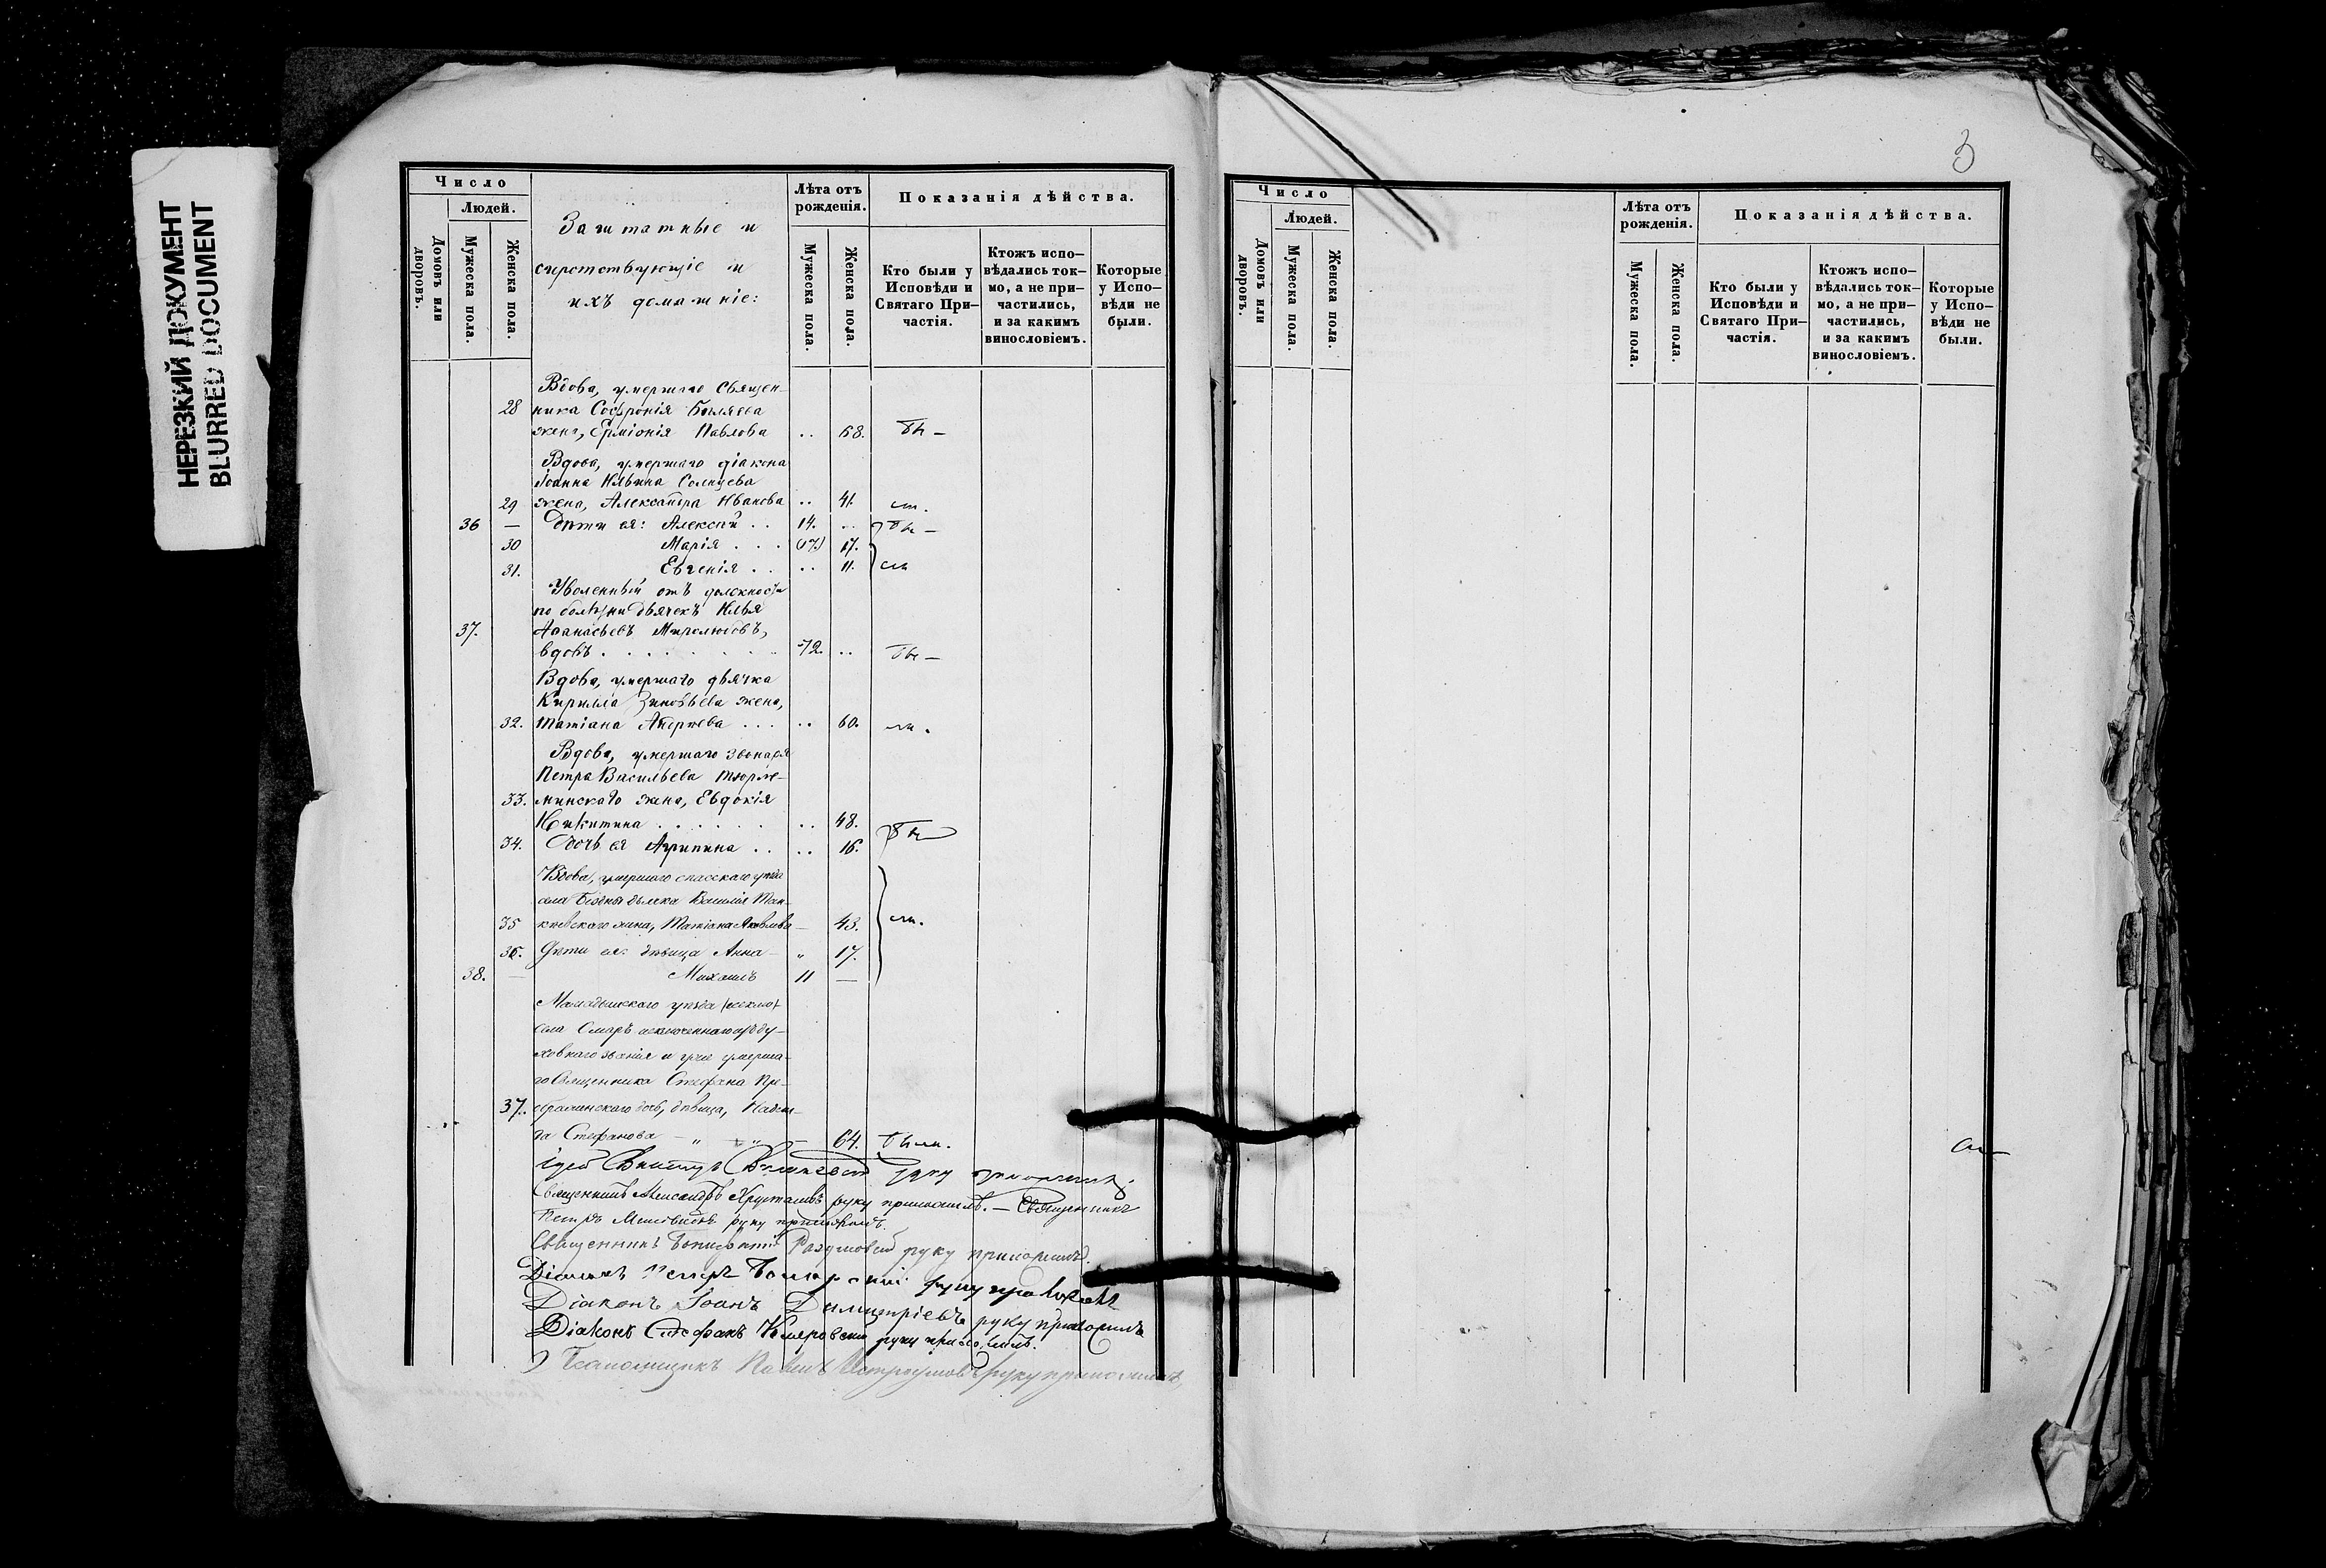 НЕРЕЗКИЙ ДОКУМЕНТ
BLURRED DOCUMENT
Число
Людей.
Домовъ или дворовъ.
Мужеска пола.
Женска пола.
Заштатные и
сиротствующіе и
ихъ домашніе:
Лѣта отъ рожденія.
Мужеска пола.
Женска пола.
Показанія дѣйства.
Кто были у Исповѣди и Святаго При–частія.
Ктожъ испо–вѣдались ток–мо, а не при–частились, и за какимъ винословіемъ.
Которые у Испо–вѣди не были.
Вдова, умершаго Священ–
28 ника Софронія Бѣляева
жена, Ерміонія Павлова .. 68. бы –
Вдова, умершаго діакона
Іоанна Ильина Солнцева
29 жена, Александра Иванова .. 41. ли.
36 — Дѣти ея: Алексѣй . . 14. .. бы –
30 Марія . . . (17.) 17.
31. Евгенія . . .. 11. ли
Уволенный отъ должности
по болѣзни дьячекъ Илья
37. Аѳанасьевъ Миролюбовъ,
вдовъ . . . . . . . 72. .. бы –
Вдова, умершаго дьячка
Кирилла Зиновьева жена,
32. Татіана Андреева . . . .. 60. ли.
Вдова, умершаго звонаря
Петра Васильева Тюрле–
33. минскаго жена, Евдокія
Никитина . . . . . . .. 48. бы
34. Дочь ея Агрипина . . .. 16.
Вдова, умершаго спасскаго уѣзда
села дьячка Василія
35 жена, Татіана Яковлева — 43. ли.
36. Дѣти ея: дѣвица Анна — „ 17.
38. — Михаилъ 11 —
Мамадышскаго уѣзда
села исключеннаго изъ ду–
ховнаго званія и умерша–
го Священника Стефана Пре–
37. дочь, дѣвица, Надеж–
да Стефанова — „ — „ — 64. были.
руку приложилъ.
Священникъ Александръ Хрусталевъ руку приложилъ. — Священникъ
Петръ руку приложилъ.
Священникъ Разумовъ руку приложилъ.
Діаконъ Петръ руку приложилъ
Діаконъ Іоаннъ Димитріевъ руку приложилъ
Діаконъ Стефанъ руку приложилъ.
Псаломщикъ Павелъ Остроумовъ руку приложилъ,
3
Число
Людей.
Домовъ или дворовъ.
Мужеска пола.
Женска пола.
Лѣта отъ рожденія.
Мужеска пола.
Женска пола.
Показанія дѣйства.
Кто были у Исповѣди и Святаго При–частія.
Ктожъ испо–вѣдались ток–мо, а не при–частились, и за какимъ винословіемъ.
Которые у Испо–вѣди не были.